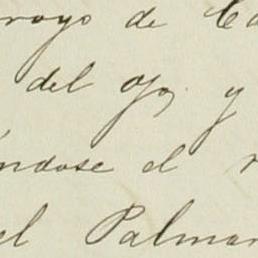 rroyo de Ca
del Ojo, y
éndose el r
el Palmar